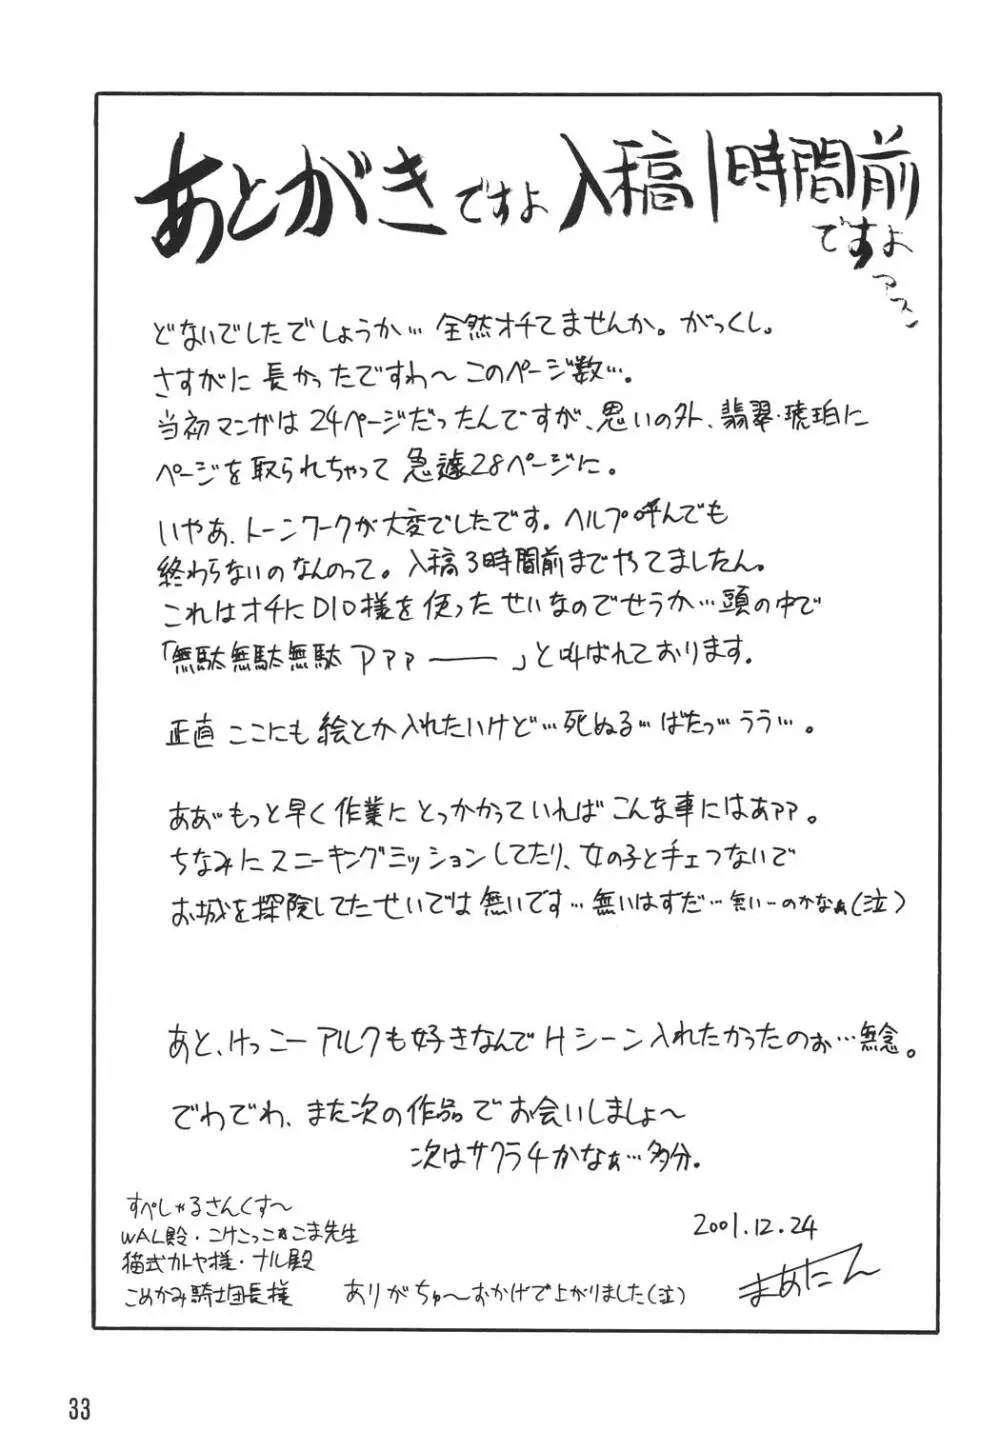 あとがきですよ 入稿1時間前
ですよ
アスン
どないでしたでしょうか… 全然オチてませんか。がっくし。
さすがに長かったですわ〜このページ数…。
当初マンガは24ページだったんですが、思いの外、翡翠・琥珀に
ページを取られちゃって急遽28ページに。
いやあ、トーンワークが大変でしたです。ヘルプ呼んでも
終わらないのなんのって。入稿3時間前までやってましたん。
これはオチにDIO様を使ったせいなのでせうか…頭の中で
「無駄無駄無駄アァァ――」と叫ばれております。
正直ここにも絵とか入れたいけど…死ぬる…ばたっ…うう…。
ああ…もっと早く作業にとっかかっていればこんな事にはあァァ。
ちなみにスニーキングミッションしてたり、女の子と手ェつないで
お城を探険してたせいでは無いです…無いはずだ…無い―のかなぁ(泣)
あと、けっこーアルクも好きなんでHシーン入れたかったのぉ…無念。
でわでわ、また次の作品でお会いしましょ〜
次はサクラ4かなぁ…多分。
すぺしゃるさんくす〜
WAL殿・こけこっこ☆こま先生
猫式カトヤ様・ナル殿
こめかみ騎士団長様 ありがちゅ〜おかげで上がりました(泣)
2001.12.24
まあたん
33